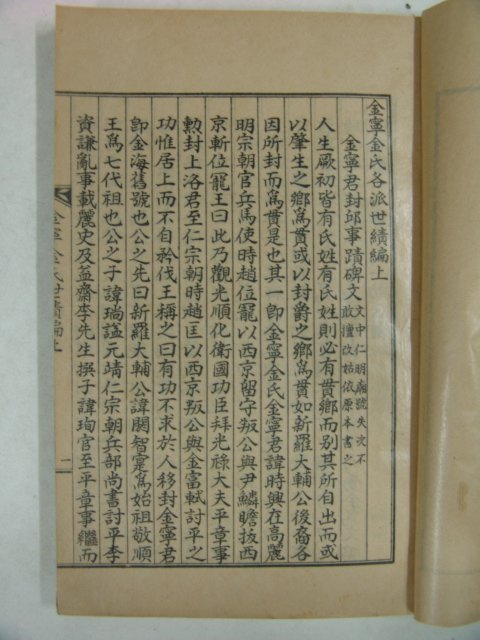 金寧金氏各派世蹟編上
金寧君封邱事蹟碑文 文中仁明廟號失次不
敢擅改姑依原本書之
人生厥初皆有氏姓有氏姓則必有貫鄉而別其所自出而或
以肇生之鄉爲貫或以封爵之鄉爲貫如新羅大輔公後裔各
因所封而爲貫是也其一卽金寧金氏金寧君諱時興在高麗
明宗朝官兵馬使時趙位寵以西京留守叛公與尹鱗瞻拔西
京斬位寵王曰此乃觀光順化衛國功臣拜光祿大夫平章事
勳封上洛君至仁宗朝時趙匡以西京叛公與金富軾討平之
功惟居上而不自矜伐王稱之曰有功不求於人移封金寧君
卽金海舊號也公之先曰新羅大輔公諱閼智寔爲始祖敬順
王爲七代祖也公之子諱瑞謚元靖仁宗朝兵部尚書討平李
資謙亂事載麗史及益齋李先生撰子諱珣官至平章事繼而
金寧金氏世蹟編上
一